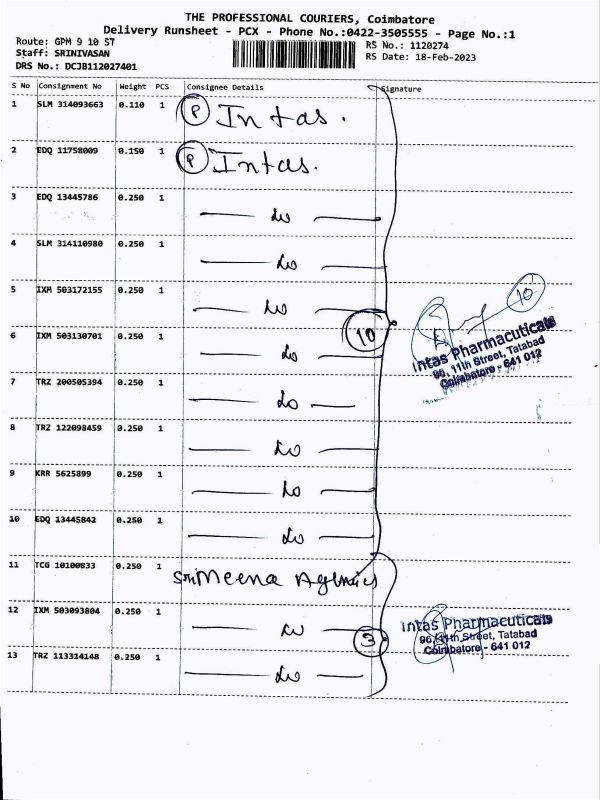 THE PROFESSIONAL COURIERS, Coimbatore
Delivery Runsheet - PCX - Phone No.:0422-3505555 - Page No.:1
Route: GPM 9 10 ST
RS No.: 1120274
Staff: SRINIVASAN
RS Date: 18-Feb-2023
DRS No.: DCJB112027401
S No Consignment No Weight PCS Consignee Details Signature
1 SLM 314093663 0.110 1 P Intas.
2 EDQ 11758009 0.150 1 P Intas.
3 EDQ 13445786 0.250 1 do
4 SLM 314110980 0.250 1 do
5 IXM 503172155 0.250 1 do
10
10
6 IXM 503130701 0.250 1 do
Intas Pharmacuticals
96, 11th Street, Tatabad
Coimbatore - 641 012
7 TRZ 200505394 0.250 1 do
8 TRZ 122098459 0.250 1 do
9 KRR 5625899 0.250 1 do
10 EDQ 13445842 0.250 1 do
11 TCG 10100833 0.250 1 Sri Meena Agencies
12 IXM 503093804 0.250 1 do
3
Intas Pharmacuticals
96, 11th Street, Tatabad
Coimbatore - 641 012
13 TRZ 113314148 0.250 1 do